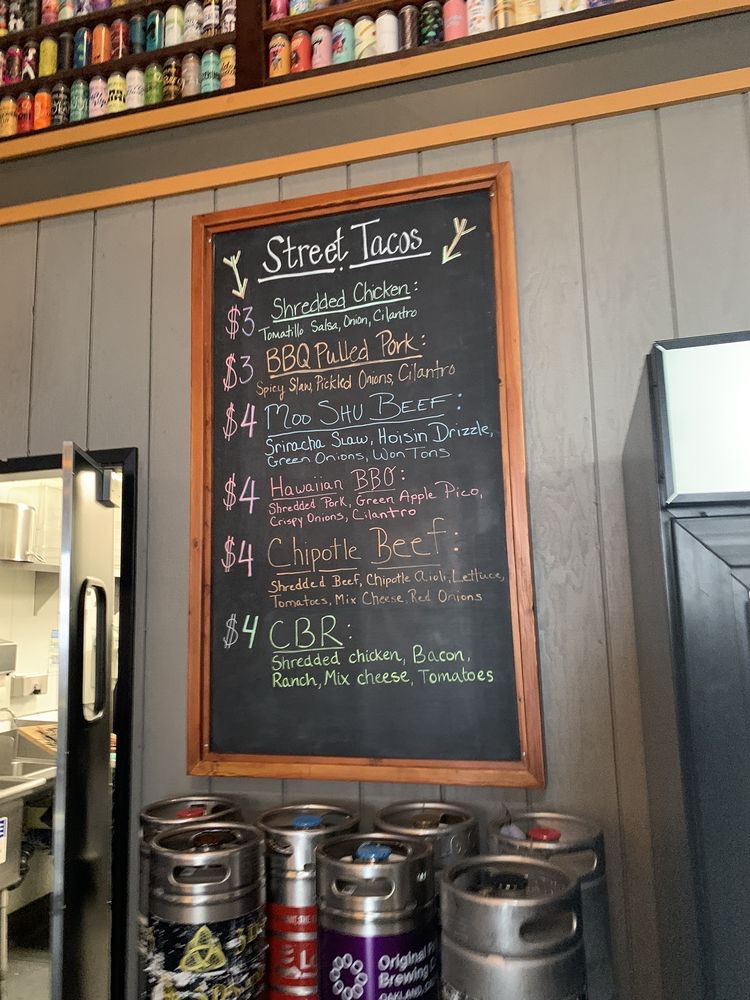 Street Tacos
$3 Shredded Chicken:
Tomatillo Salsa, Onion, Cilantro
$3 BBQ Pulled Pork:
Spicy Slaw, Pickled Onions, Cilantro
$4 Moo Shu Beef:
Sriracha Slaw, Hoisin Drizzle,
Green Onions, Won Tons
$4 Hawaiian BBQ:
Shredded Pork, Green Apple Pico,
Crispy Onions, Cilantro
$4 Chipotle Beef:
Shredded Beef, Chipotle aioli, Lettuce,
Tomatoes, Mix Cheese, Red Onions
$4 CBR:
Shredded chicken, Bacon,
Ranch, Mix cheese, Tomatoes
Original
Brewing
OAKLAND,